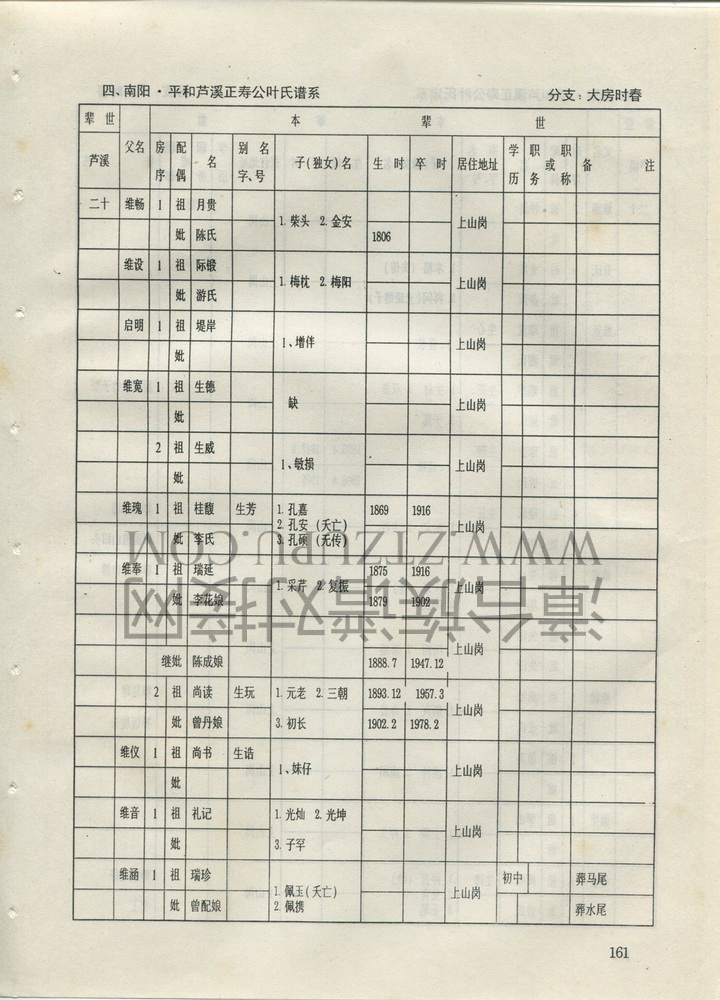 四、南阳·平和芦溪正寿公叶氏谱系 分支：大房时春
辈世 本辈世
芦溪 父名 房序 配偶 名 别名字、号 子(独女)名 生时 卒时 居住地址 学历 职务或职称 备注
二十 维畅 1 祖 月贵 1.柴头 2.金安 上山岗
妣 陈氏 1806
维设 1 祖 际锻 1.梅枕 2.梅阳 上山岗
妣 游氏
启明 1 祖 堤岸 1、增伴 上山岗
妣
维宽 1 祖 生德 缺 上山岗
妣
2 祖 生威 1、敏损 上山岗
妣
维瑰 1 祖 桂馥 生芳 1.孔嘉 1869 1916 上山岗
2.孔安(夭亡)
妣 李氏 3.孔硕(无传)
维奉 1 祖 瑞延 1.采芹 2.复振 1875 1916 上山岗
妣 李花娘 1879 1902
上山岗
继妣 陈成娘 1888.7 1947.12
2 祖 尚读 生玩 1.元老 2.三朝 1893.12 1957.3 上山岗
妣 曾丹娘 3.初长 1902.2 1978.2
维仪 1 祖 尚书 生诰 1、妹仔 上山岗
妣
维音 1 祖 礼记 1.光灿 2.光坤 上山岗
妣 3.子罕
维涵 1 祖 瑞珍 1.佩玉(夭亡) 上山岗 初中 葬马尾
妣 曾配娘 2.佩携 葬水尾
161
WWW.ZTZUPU.COM
漳台族谱对接网